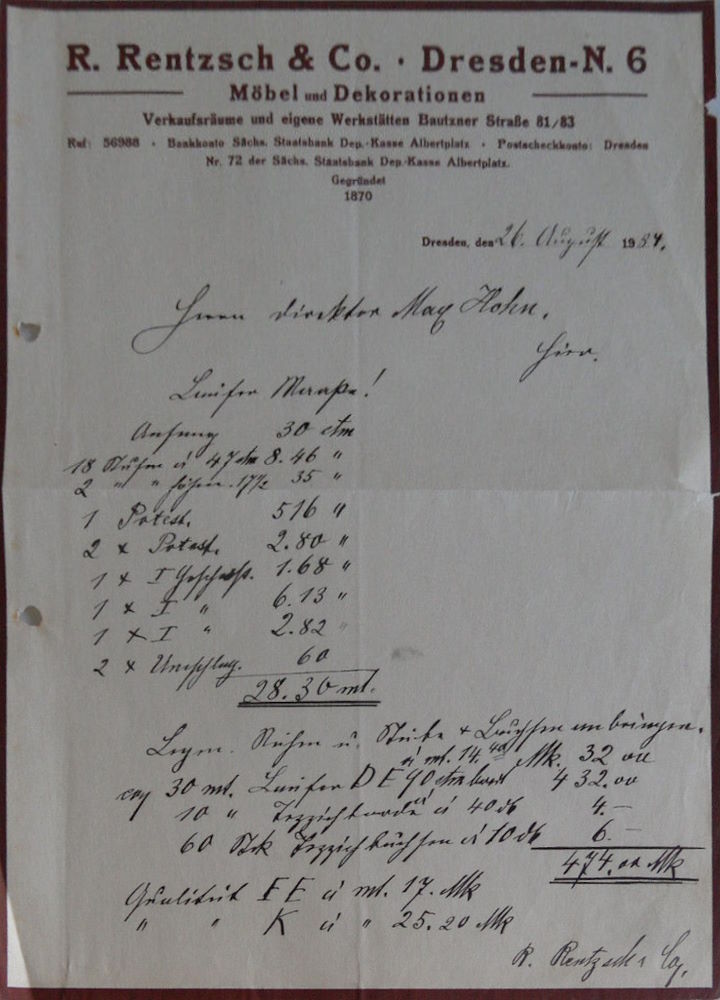 R. Rentzsch & Co. · Dresden-N. 6
Möbel und Dekorationen
Verkaufsräume und eigene Werkstätten Bautzner Straße 81/83
Ruf: 56988 · Bankkonto Sächs. Staatsbank Dep.-Kasse Albertplatz · Postscheckkonto: Dresden
Nr. 72 der Sächs. Staatsbank Dep.-Kasse Albertplatz.
Gegründet
1870
Dresden, den 26. August 1934.
Herrn Direktor Max Hohn.
Hier.
Läufer Maaße!
Anfang 30 ctm
18 Stufen á 47 ctm 8.46 "
2 " " 17½ 35 "
1 Potest. 516 "
2 x Potest. 2.80 "
1 x I Geschoß. 1.68 "
1 x I " 6.13 "
1 x I " 2.82 "
2 x Umschlag. 60
28.30 mt.
Legen. u. anbringen. Mk. 32 00
30 mt. Läufer D E 90 ctm breit á mt. 14.40 432.00
10 " á 40 4.–
60 Stk á 10 6.–
474.00 Mk
Qualität EE á mt. 17. Mk
" " K á " 25.20 Mk
R. Rentzsch & Co.